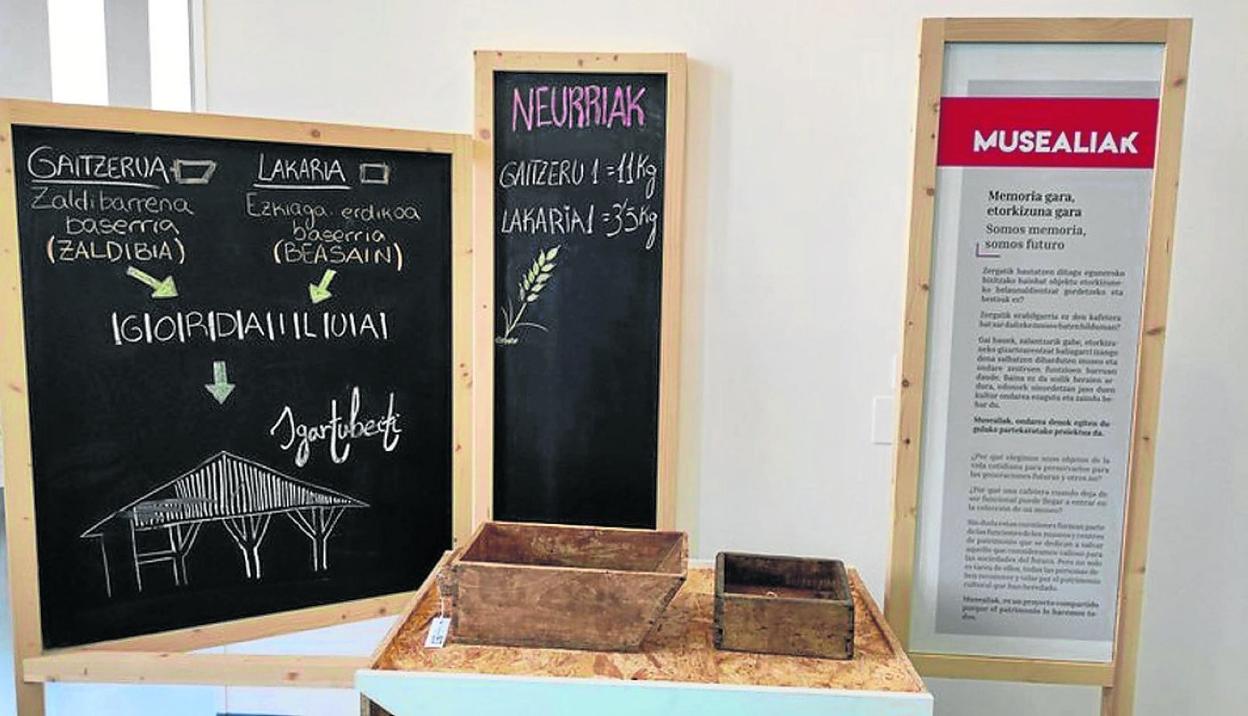 GAITZERUA
Zaldibarrena
baserria
(ZALDIBIA)
LAKARIA
Ezkiaga erdikoa
baserria
(BEASAIN)
GORDAILUA
Igartubeiti
NEURRIAK
GAITZERU 1 = 11 Kg
LAKARIA 1 = 3'5 Kg
MUSEALIAK
Memoria gara,
etorkizuna gara
Somos memoria,
somos futuro
Zergatik hautatzen ditugu eguneroko
bizitzako hainbat objektu etorkizune-
ko belaunaldientzat gordetzeko eta
besteak ez?
Zergatik erabilgarria ez den kafetera
bat sar daiteke museo baten bilduman?
Gai hauek, zalantzarik gabe, etorkizu-
neko gizartearentzat baliagarri izango
dena salbatzen diharduten museo eta
ondare zentroen funtzioen barruan
daude. Baina ez da soilik beraien ar-
dura, ondorengo
kultur ondarea ezagutu eta zaindu be-
har du.
Musealiak, ondarea denok egiten du-
gulako partekatutako proiektua da.
¿Por qué elegimos unos objetos de la
vida cotidiana para preservarlos para
las generaciones futuras y otros no?
¿Por qué una cafetera cuando deja de
ser funcional puede llegar a entrar en
la colección de un museo?
Sin duda estas cuestiones forman parte
de las funciones de los museos y centros
de patrimonio que se dedican a salvar
aquello que consideramos valioso para
las sociedades del futuro. Pero no solo
es tarea de ellos, todas las personas de-
ben reconocer y velar por el patrimonio
cultural que han heredado.
Musealiak, es un proyecto compartido
porque el patrimonio lo hacemos to-
dos.